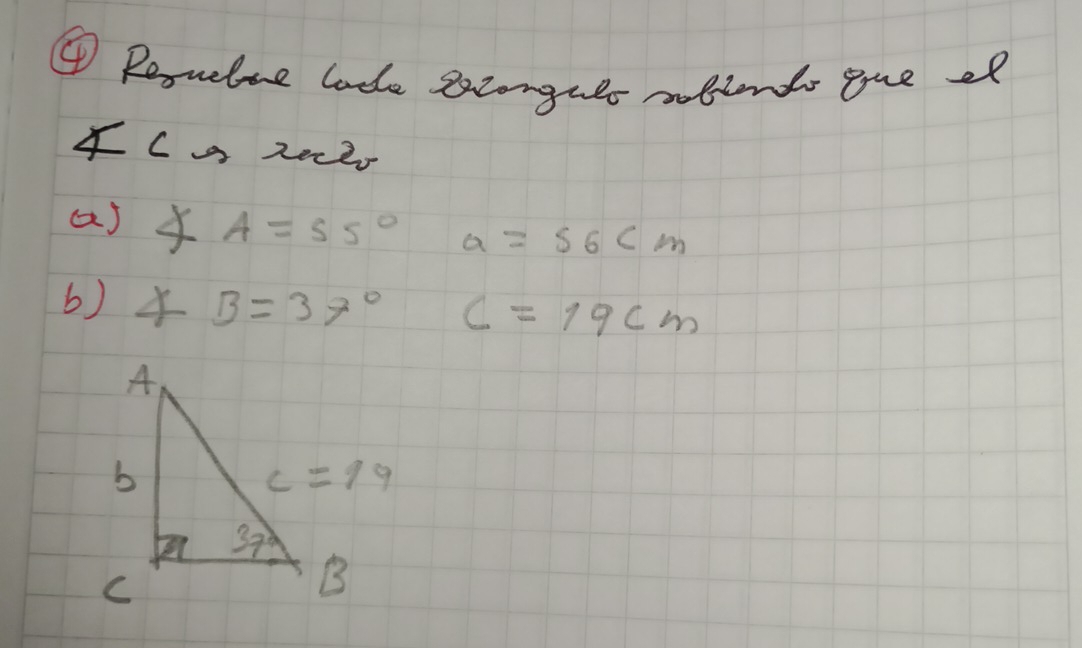 ④ Resuelve cada triangulo sabiendo que el
∡ C es recto
a) ∡ A = 55° a = 56 cm
b) ∡ B = 37° C = 19 cm
A
b c = 19
37°
C B